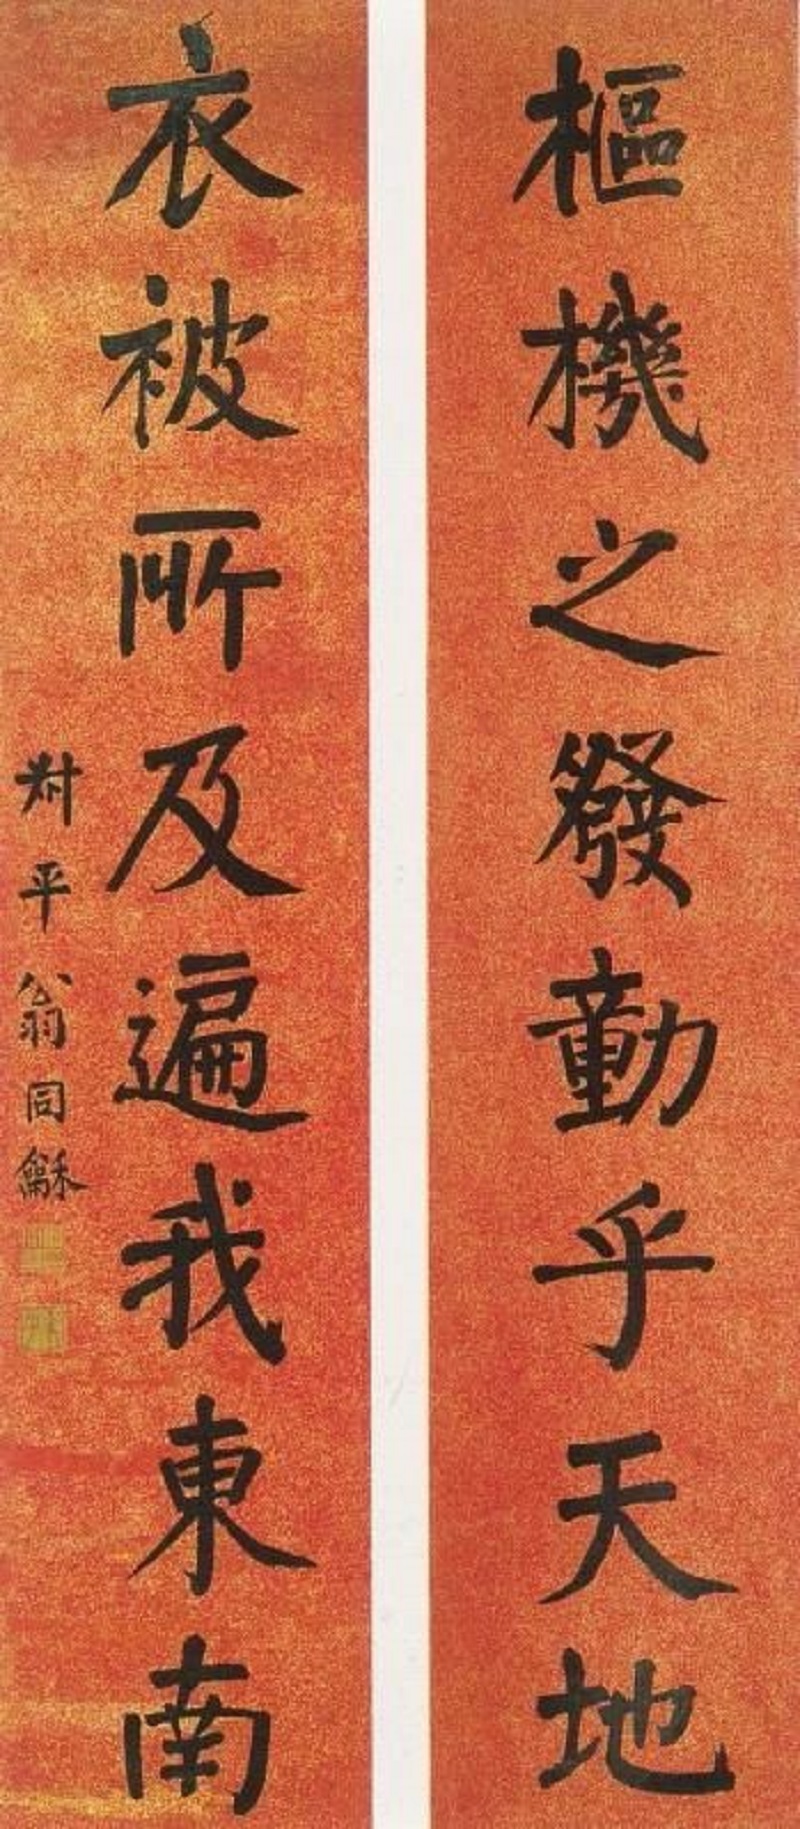 樞機之發動乎天地
衣被所及遍我東南
叔平翁同龢